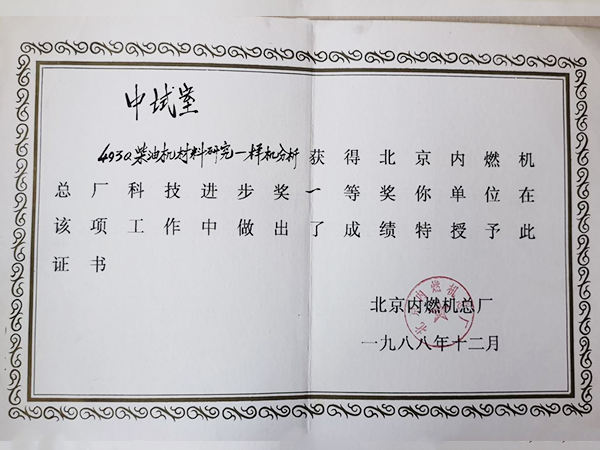 中试室
493Q柴油机材料研究一样机分析获得北京内燃机
总厂科技进步奖一等奖你单位在
该项工作中做出了成绩特授予此
证书
北京内燃机总厂
一九八八年十二月
北京内燃机总厂